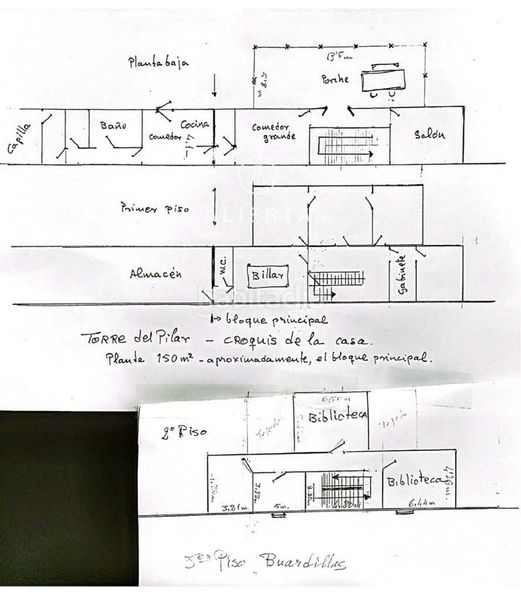 Planta baja
13'5 m
Porche
Capilla
Baño
Comedor
Cocina
Comedor grande
Salón
Primer piso
ALIERTA
Almacén
W.C.
Billar
Gabinete
habitaclia
bloque principal
TORRE del PILAR - CROQUIS de la CASA.
Planta 150 m² - aproximadamente, el bloque principal.
2º Piso
Biblioteca
Tejado
Tejado
Biblioteca
3.81m
5m
6.44m
3er Piso Buardillas